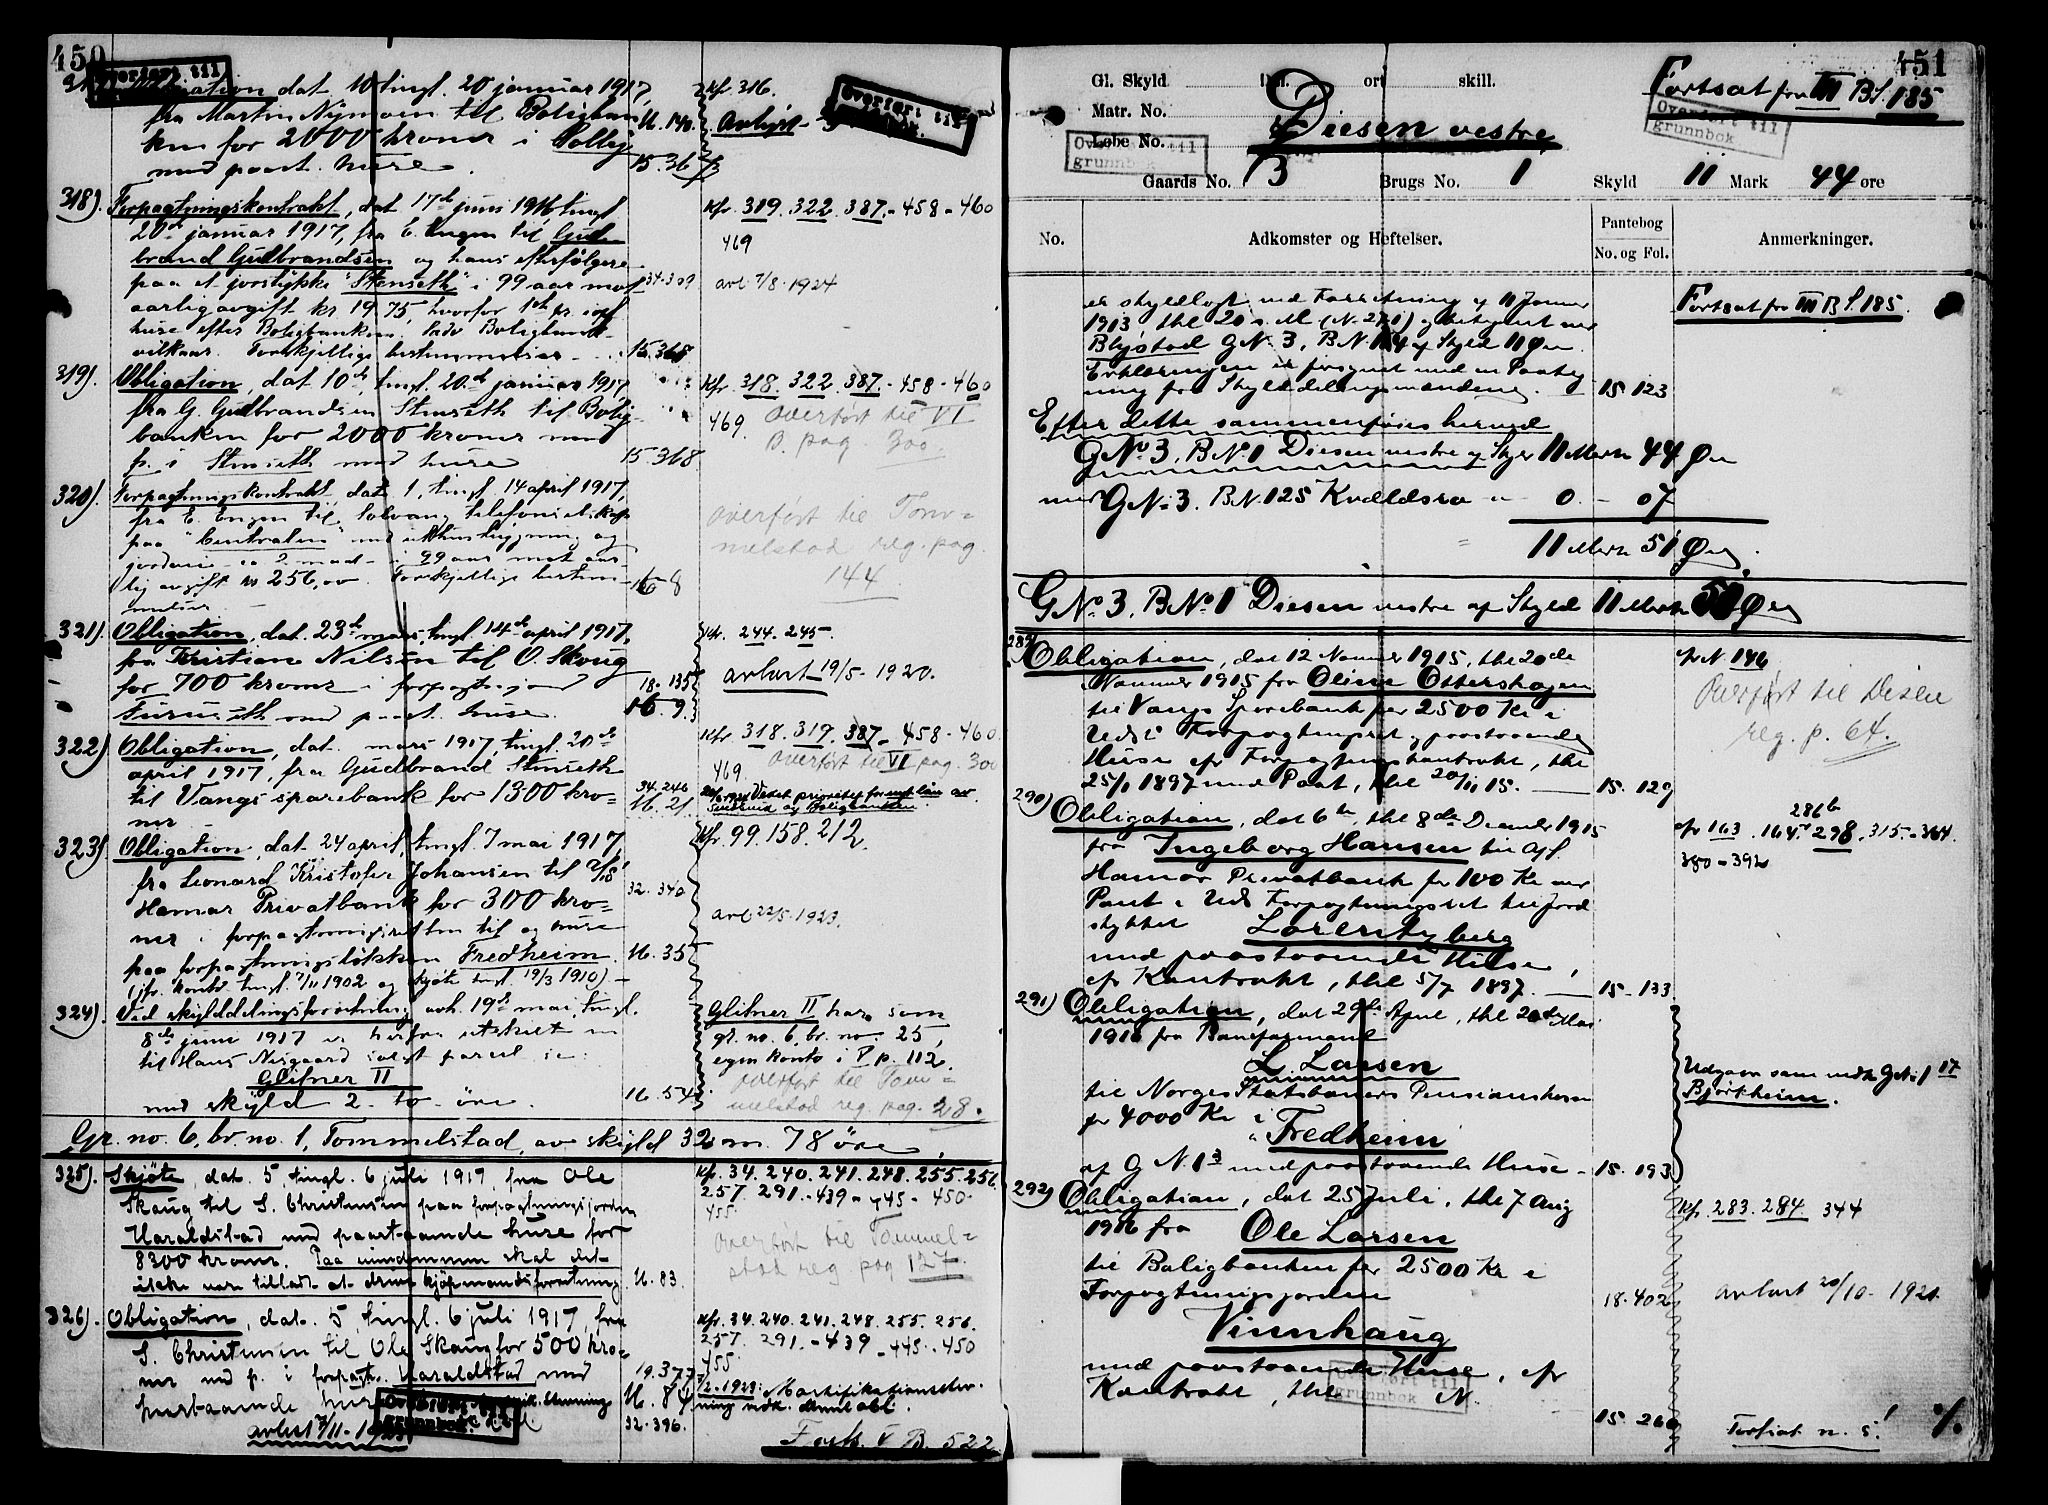 450
Overført til
317) Obligation dat. 10 tingl. 20 januar 1917,
fra Martin Nymoen til Boligban
ken for 2000 kroner i Solbg
med paast. huse.
16. 140.
15. 367
Kfr. 316.
Avlyst
Overført til
318). Forpagtningskontrakt, dat 17de juni 1916 tingl
20de januar 1917, fra E. Engen til Gud-
brand Gudbrandsen og hans efterfølgere
paa et jorstykke "Stenseth" i 99 aar mot
aarlig avgift kr. 19.75, hvorfor 1ste pr. i og
huse efter Boligbankens
vilkaar. Forskjellige bestemmelser
34-309
15. 368
Kfr. 319. 322. 387. - 458 - 460
469
avl. 7/8. 1924
319). Obligation, dat 10de, tingl. 20de januar 1917
fra G. Gudbrandsen Stenseth til Bolig
banken for 2000 kroner med
p. i Stenseth med huse
15. 368
Kfr. 318. 322. 387. - 458 - 460
469. Overført til VI
B. pag 300.
320). Forpagtningskontrakt, dat. 1, tingl. 14 april 1917,
fra E. Engen til Solvang telefonselskap
paa "Centralen" med
i 99 aar mot aar-
lig avgift kr 256,00. Forskjellige bestem-
melser.
16-8
Overført til Tom-
melstad reg. pag.
144
321). Obligation, dat. 23de mars, tingl. 14de april 1917.
fra Kristian Nilsen til O. Skoug
for 700 kroner i forpagtn. jord
Furuseth med paast. huse.
18. 135
16. 9.
Kfr. 244. 245.
avlæst 19/5 - 1920.
322). Obligation, dat. mars 1917, tingl. 20de
april 1917, fra Gudbrand Stenseth
til Vangs sparebank for 1300 kro-
ner
34. 246
16. 21
Kfr. 318. 319. 387. - 458 - 460.
469. Overført til VI pag. 300
Veket prioritet for nyt lån av
323). Obligation, dat. 24 april, tingl. 7 mai 1917,
fra Leonard Kristofer Johansen til A/S
Hamar Privatbank for 300 kro-
ner i forpagtningsretten til og huse
paa forpagtningsløkken Fredheim.
(jfr. kontr. tingl. 7/11 1902 og skjøte tingl. 19/3 1910)
32. 340
16. 35
Kfr. 99. 158. 212.
avl 22/5. 1923.
324). Ved skylddelingsforretning avh. 19de mai, tingl.
8de juni 1917 er herfra utskilt en
til Hans Nesgaard solgt parcel ie:
Glitner II
med skyld 2 - to - øre.
16. 54
Glitner II har som
gr. no. 6, br. no. 25,
egen konto i V p. 112.
Overført til Tom-
melstad reg. pag. 28.
Gr. no. 6, br. no. 1, Tommelstad, av skyld 32 m. 78 øre.
325). Skjøte, dat. 5 tingl. 6 juli 1917, fra Ole
Skaug til S. Christensen paa forpagtningsjorden
Haraldstad med paastaaende huse for
8300 kroner. Paa eiendommen skal det
ikke være tilladt at drive kjøpmandsforretning
16. 83.
Kfr. 34. 240. 241. 248. 255. 256.
257. 291. - 439 - 445 - 450.
455.
Overført til Tommel-
stad reg pag 127.
326). Obligation, dat. 5, tingl. 6 juli 1917, fra
S. Christensen til Ole Skaug for 500 kro-
ner med p. i forpagt. Haraldstad med
paastaaende huse
Overført til
grunnbok.
avlæst
19. 377
16. 84
32. 396.
Kfr. 34. 240. 241. 248. 255. 256.
257. 291. - 439 - 445. - 450
455.
Mortifikationsstev-
ning vedk. denne obl.
Forts. V B. 522
451
Gl. Skyld ort skill.
Matr. No.
Løbe No.
Diesen vestre
Fortsat fra III B S. 185
Overført til
grunnbok
Overført til
grunnbok
Gaards No. 3 Brugs No. 1 Skyld 11 Mark 44 øre
No.
Adkomster og Heftelser.
Pantebog
No. og Fol.
Anmerkninger.
er skyldlagt ved Forretning af 11 Januar
1913, thl 20 s. M. (N. 271) og betegnet som
Blystad G N. 3, B N. 124 af Skyld 11 Øre.
Erklæringen er forsynet med en Paateg
ning fra Skylddelingsmændene.
15 123
Fortsat fra III B S. 185.
Efter dette sammenføies herved
G No 3, B No 1 Diesen vestre af Skyld 11 Mark 44 Øre
med G N. 3. B N. 125 Kvældsro " - 0. - 07
11 Mark 51 Øre.
G No. 3, B No 1 Diesen vestre af Skyld 11 Mark 51 Øre
289) Obligation, dat 12 November 1915, thl 20de
November 1915 fra Oline Ottershagen
til Vangs Sparebank for 2500 Kr i
Uds i Forpagtningsret og paastaaende
Huse efr Forpagtningskontrakt, thl
25/1 1897 med Paat, thl 20/11 15.
15. 129
cfr N 146
Overført til Disen
reg. p. 64.
290) Obligation, dat 6te, thl 8de December 1915
fra Ingeborg Hansen til A/S.
Hamar Privatbank for 100 Kr med
Pant i Uds Forpagtningsret til Jord
stykket Lorentzberg
med paastaaende Huse,
efr Kontrakt, thl 5/7 1897.
15. 133
286b
cfr 163. 164. 298. 315 - 364.
380 - 392
291) Obligation, dat 29de April, thl 20de Mai
1916 fra Baneformand
L. Larsen
til Norges Statsbaners Pensionskasse
for 4000 Kr i
"Fredheim
af G N. 13 med paastaaende Huse
15. 193
Udgaar som vedk G N. 1 17
Bjørkheim.
292) Obligation, dat 25 Juli, thl 7 Aug
1916 fra
Ole Larsen
til Boligbanken for 2500 Kr i
Forpagtningsjorden
Vinnhaug
med paastaaende Huse, efr
Kontrakt, thl N.
Overført til
grunnbok
18. 402
15 266
Kfr. 283. 284. 344
avlæst 20/10. 1921.
Fortsat n. s.! %